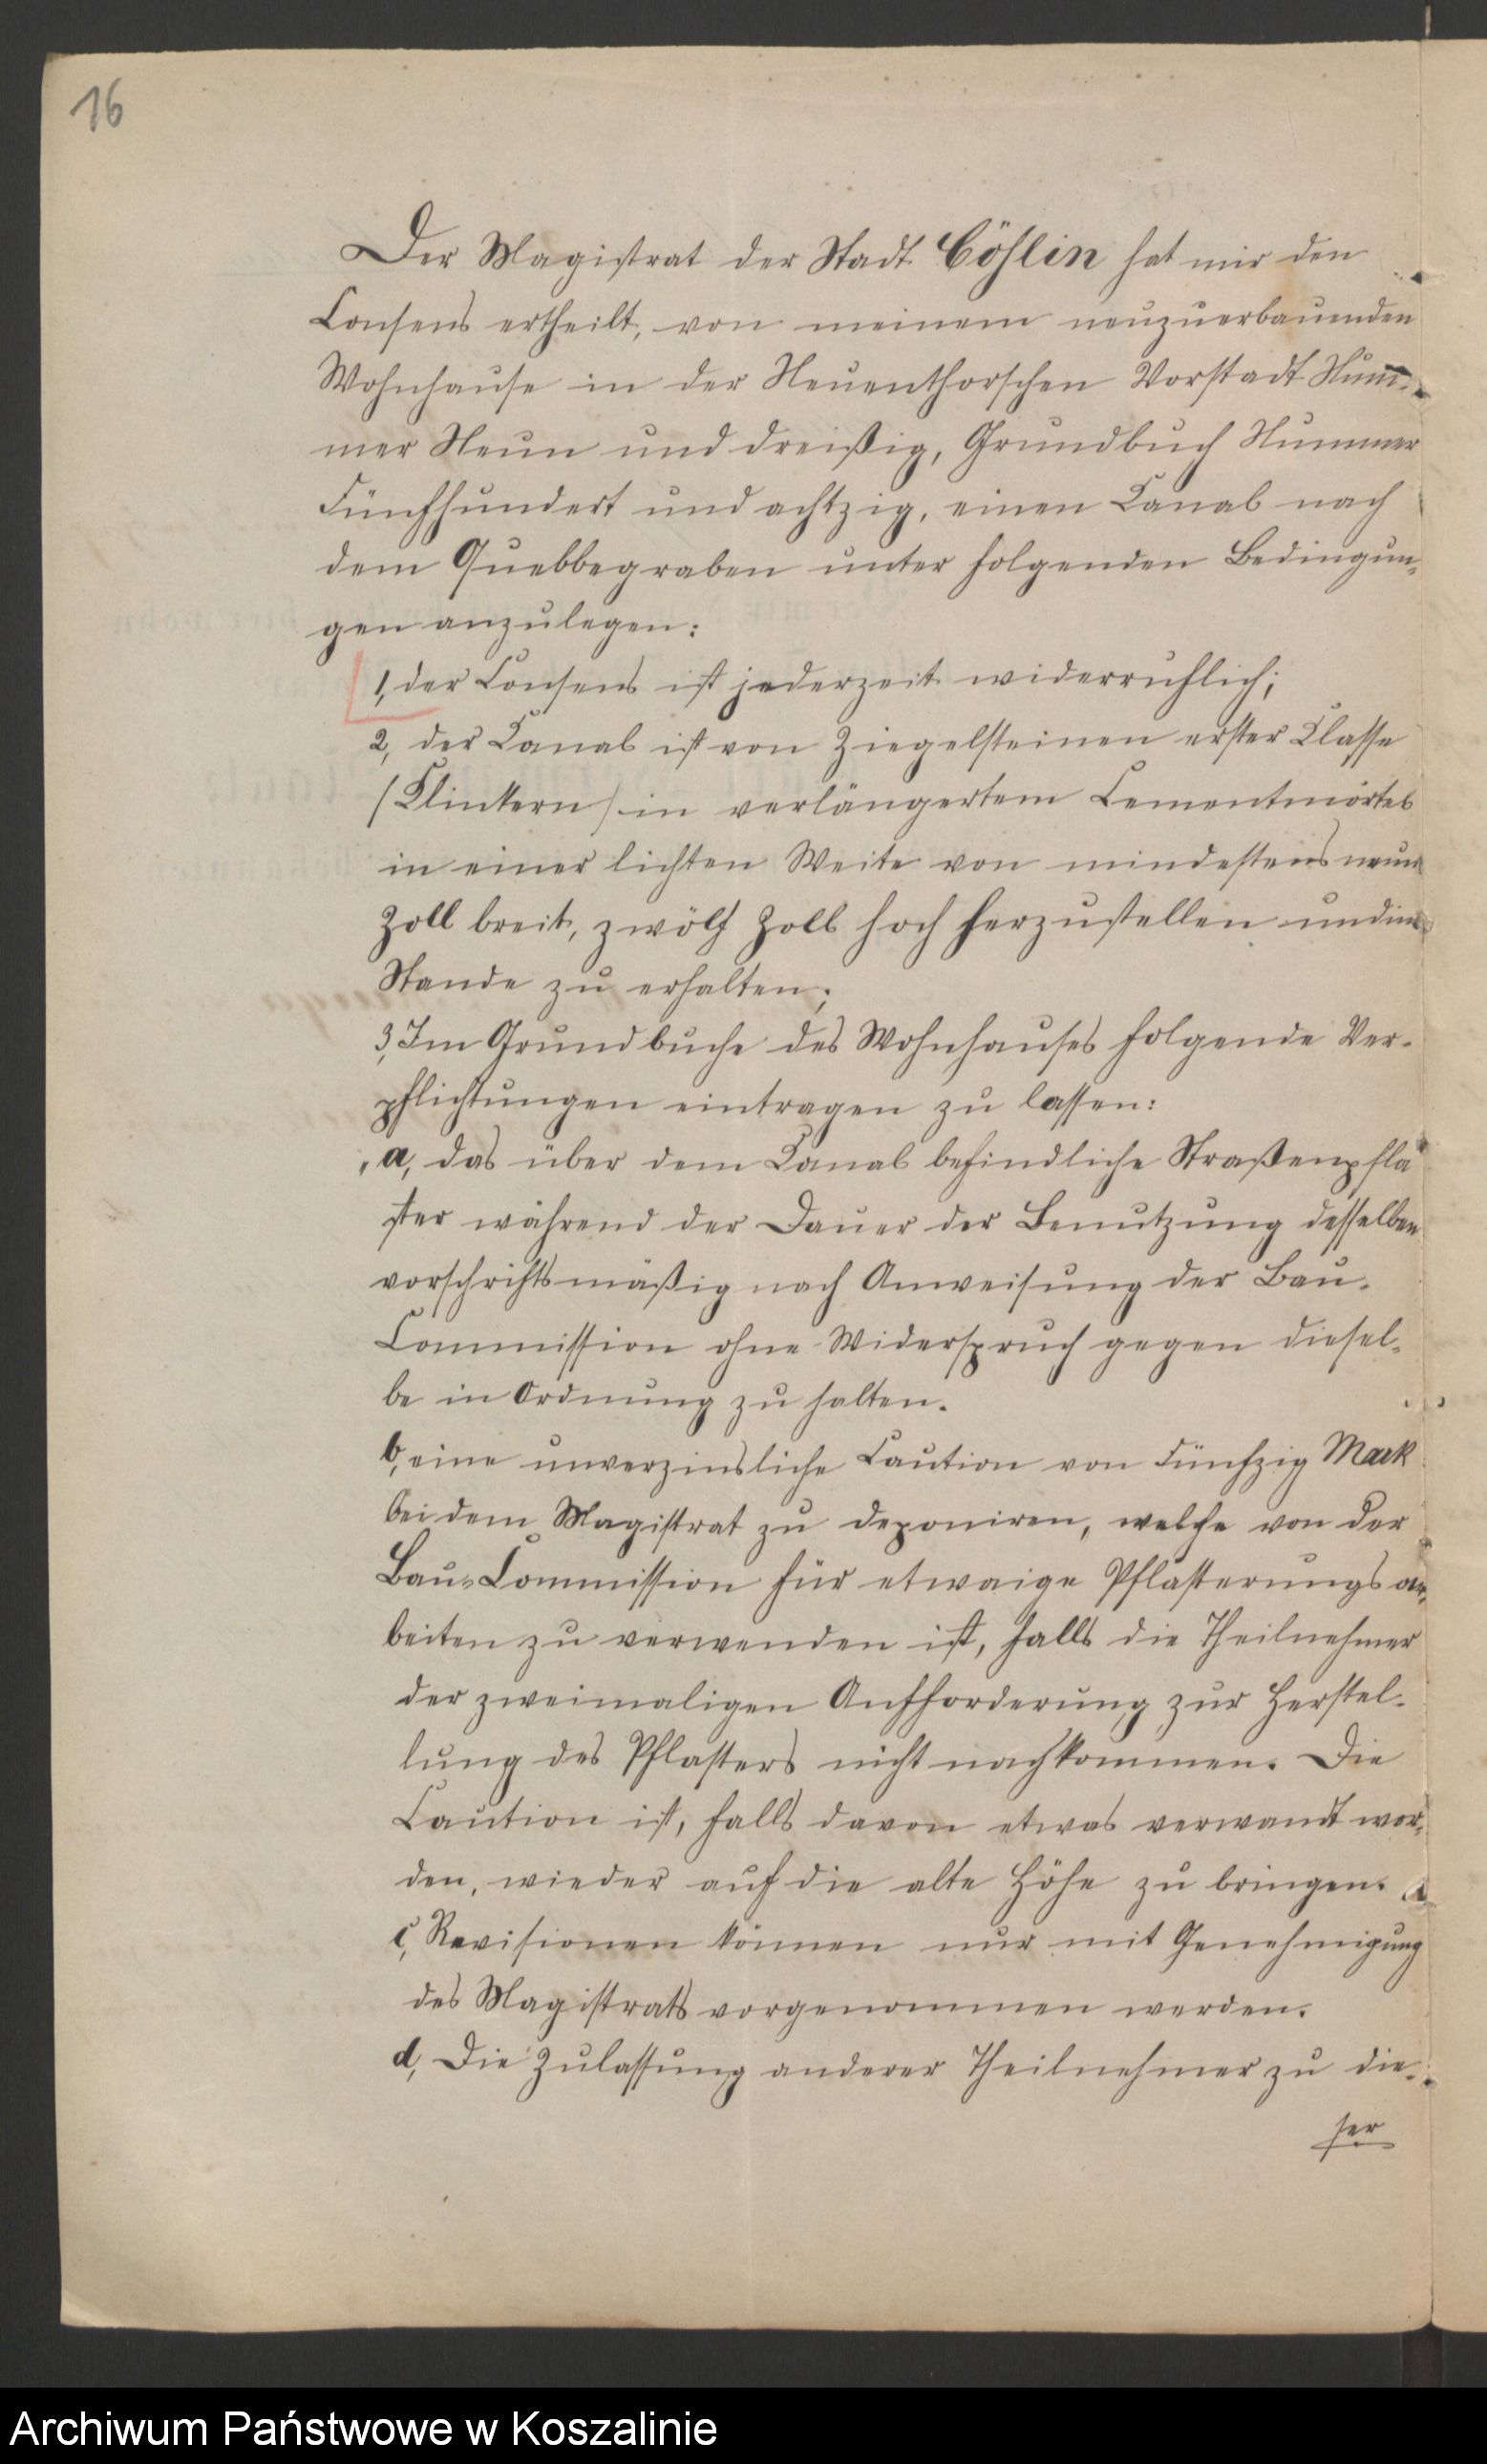 16
Der Magistrat der Stadt Cöslin hat mir den
Consens ertheilt, von meinem neuzuerbauenden
Wohnhause in der Neuenthorschen Vorstadt Num-
mer Neun und dreißig, Grundbuch Nummer
Fünfhundert und achtzig, einen Canal nach
dem Quebbegraben unter folgenden Bedingun-
gen anzulegen:
1, der Consens ist jederzeit widerruflich;
2, der Canal ist von Ziegelsteinen erster Classe
(Klinkern) in verlängertem Cementmörtel
in einer lichten Weite von mindestens neun
Zoll breit, zwölf Zoll hoch herzustellen und im
Stande zu erhalten;
3, Im Grundbuche des Wohnhauses folgende Ver-
pflichtungen eintragen zu lassen:
„a, das über dem Canal befindliche Straßenpfla
ster während der Dauer der Benutzung desselben
vorschriftsmäßig nach Anweisung der Bau-
Commission ohne Widerspruch gegen diesel-
be in Ordnung zu halten.
b, eine unverzinsliche Caution von Fünfzig Mark
bei dem Magistrat zu deponiren, welche von der
Bau-Commission für etwaige Pflasterungsar-
beiten zu verwenden ist, falls die Theilnehmer
der zweimaligen Aufforderung zur Herstel-
lung des Pflasters nicht nachkommen. Die
Caution ist, falls davon etwas verwandt wor-
den, wieder auf die alte Höhe zu bringen.
c, Revisionen können nur mit Genehmigung
des Magistrats vorgenommen werden.
d, Die Zulassung anderer Theilnehmer zu die-
ser
Archiwum Państwowe w Koszalinie